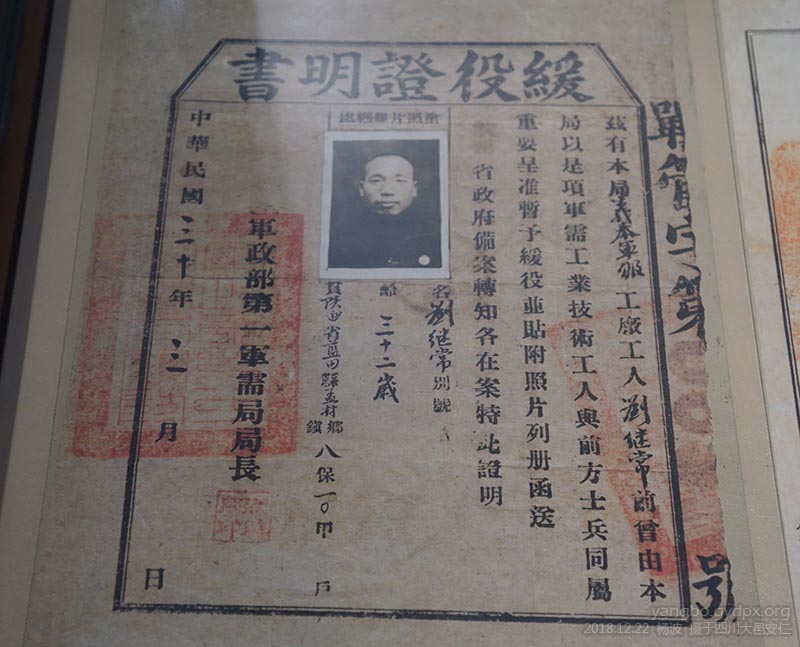 緩役證明書
茲有本局義泰軍服工廠工人劉继常前曾由本
局以是項軍需工業技術工人與前方士兵同屬
重要呈准暫予緩役並貼附照片列册函送
省政府備案轉知各在案特此證明
黏照片騎縫處
名劉继常別號
齡三十二歲
貫陝西省藍田縣孟村鄉鎮八保一〇甲 戶
軍政部第一軍需局局長
中華民國三十年三月 日
號
yangbo.gydpx.org
2018.12.22 杨波 摄于四川大邑安仁